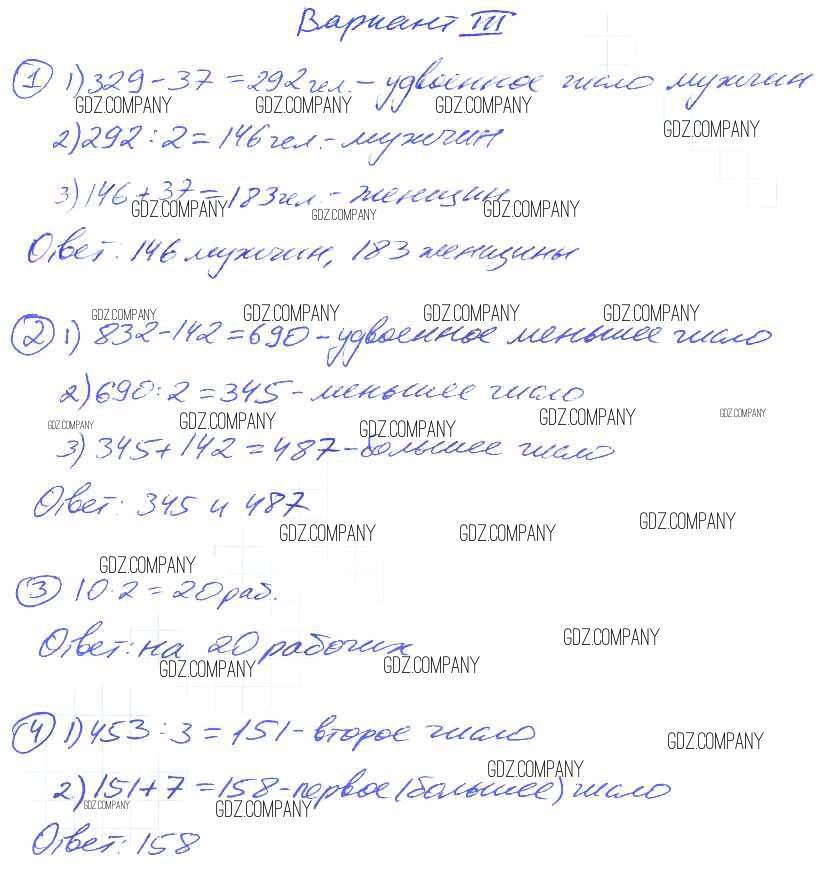 Вариант III
1 1) 329 - 37 = 292 чел. - удвоенное число мужчин
GDZ.COMPANY GDZ.COMPANY GDZ.COMPANY
GDZ.COMPANY
2) 292 : 2 = 146 чел. - мужчин
3) 146 + 37 = 183 чел. - женщин
GDZ.COMPANY GDZ.COMPANY GDZ.COMPANY
Ответ: 146 мужчин, 183 женщины
GDZ.COMPANY GDZ.COMPANY GDZ.COMPANY GDZ.COMPANY
2 1) 832 - 142 = 690 - удвоенное меньшее число
2) 690 : 2 = 345 - меньшее число
GDZ.COMPANY GDZ.COMPANY GDZ.COMPANY GDZ.COMPANY GDZ.COMPANY
3) 345 + 142 = 487 - большее число
Ответ: 345 и 487
GDZ.COMPANY GDZ.COMPANY GDZ.COMPANY
GDZ.COMPANY
3 10 · 2 = 20 раб.
Ответ: на 20 рабочих
GDZ.COMPANY
GDZ.COMPANY GDZ.COMPANY
4 1) 453 : 3 = 151 - второе число
GDZ.COMPANY
GDZ.COMPANY
2) 151 + 7 = 158 - первое (большее) число
GDZ.COMPANY GDZ.COMPANY
Ответ: 158